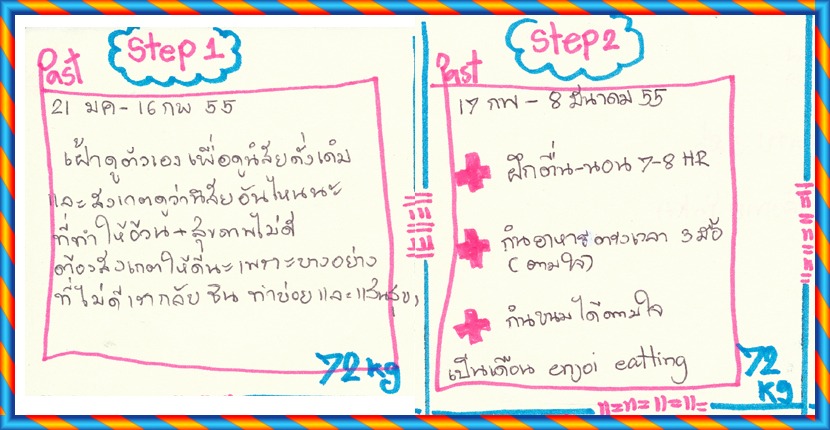 Step 1
Past
21 มค - 16 กพ 55
เฝ้าดูตัวเอง เพื่อดูนิสัยดั้งเดิม
และสังเกตดูว่านิสัยอันไหนนะ
ที่ทำให้อ้วน + สุขภาพไม่ดี
ต้องสังเกตให้ดีนะ เพราะบางอย่าง
ที่ไม่ดี เรากลับ ชิน ทำบ่อย และแสนสุข,
72 kg
Step 2
Past
17 กพ - 8 มีนาคม 55
ฝึกตื่น-นอน 7-8 HR
กินอาหารตรงเวลา 3 มื้อ
(ตามใจ)
กินขนมได้ตามใจ
เป็นเดือน enjoi eatting
72
kg